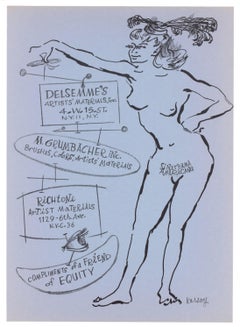 DELSEMME'S
ARTISTS MATERIALS, Inc.
4 W. 15-ST.
N.Y. 11, N.Y.
M. GRUMBACHER, INC.
BRUSHES, COLORS, ARTISTS MATERIALS
RICHTONE
ARTIST MATERIALS
1129-6th AVE.
N.Y.C.-36
COMPLIMENTS of a FRIEND
of EQUITY